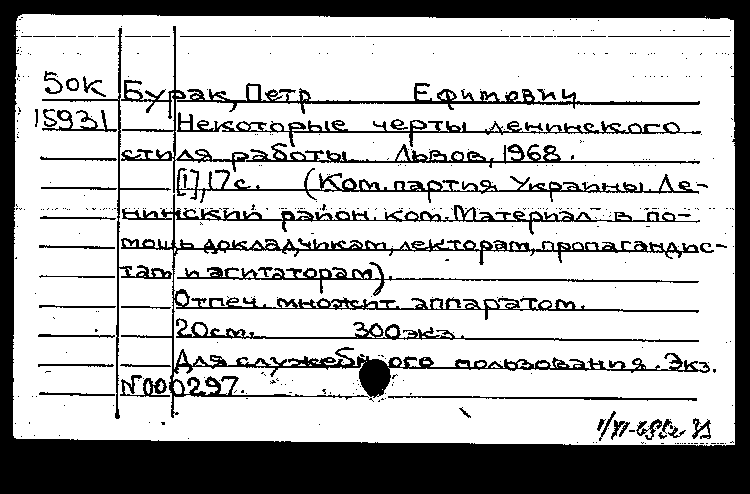 50К Бурак, Петр Ефимович
15931 Некоторые черты ленинского
стиля работы. Львов, 1968.
[1], 17с. (Ком. партия Украины. Ле-
нинский район. ком. Материал в по-
мощь докладчикам, лекторам, пропагандис-
там и агитаторам).
Отпеч. множит. аппаратом.
20см. 300экз.
Для служебного пользования. Экз.
N000297.